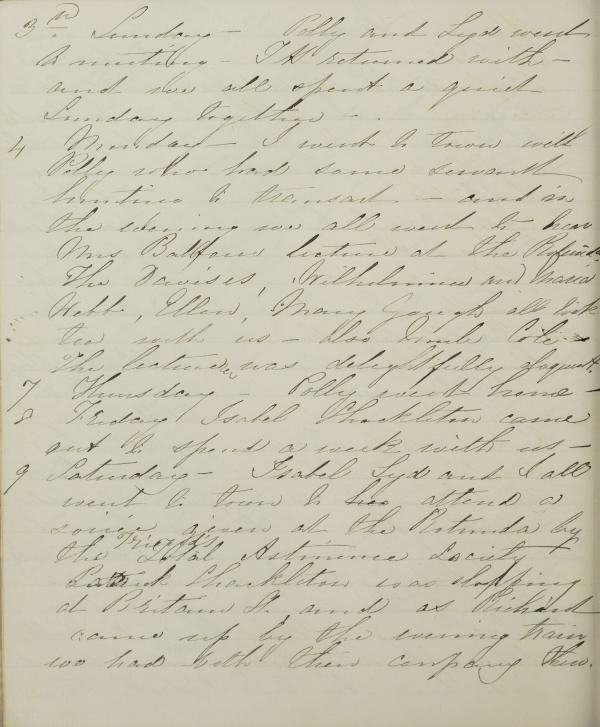 3rd Sunday — Polly and Lyd went
to meeting — TH returned with —
and we all spent a quiet
Sunday together —.
4 Monday — I went to town with
Polly who had some servant
hunting to transact — and in
the evening we all went to hear
Mrs Balfour lecture at the Rotunda
The Davises, Wilhelmina and Maria
Webb, Ellen, Mary Gough all took
tea with us — also Uncle
The lecture was delightfully eloquent.
7 Thursday — Polly went home —
8 Friday Isabel Shackleton came
out to spend a week with us —
9 Saturday — Isabel Lyd and I all
went to town to attend a
soiree given at the Rotunda by
the Friends Total Abstinence Society
Shackleton was stopping
at Britain St. and as Richard
came up by the evening train
we had both their company there.